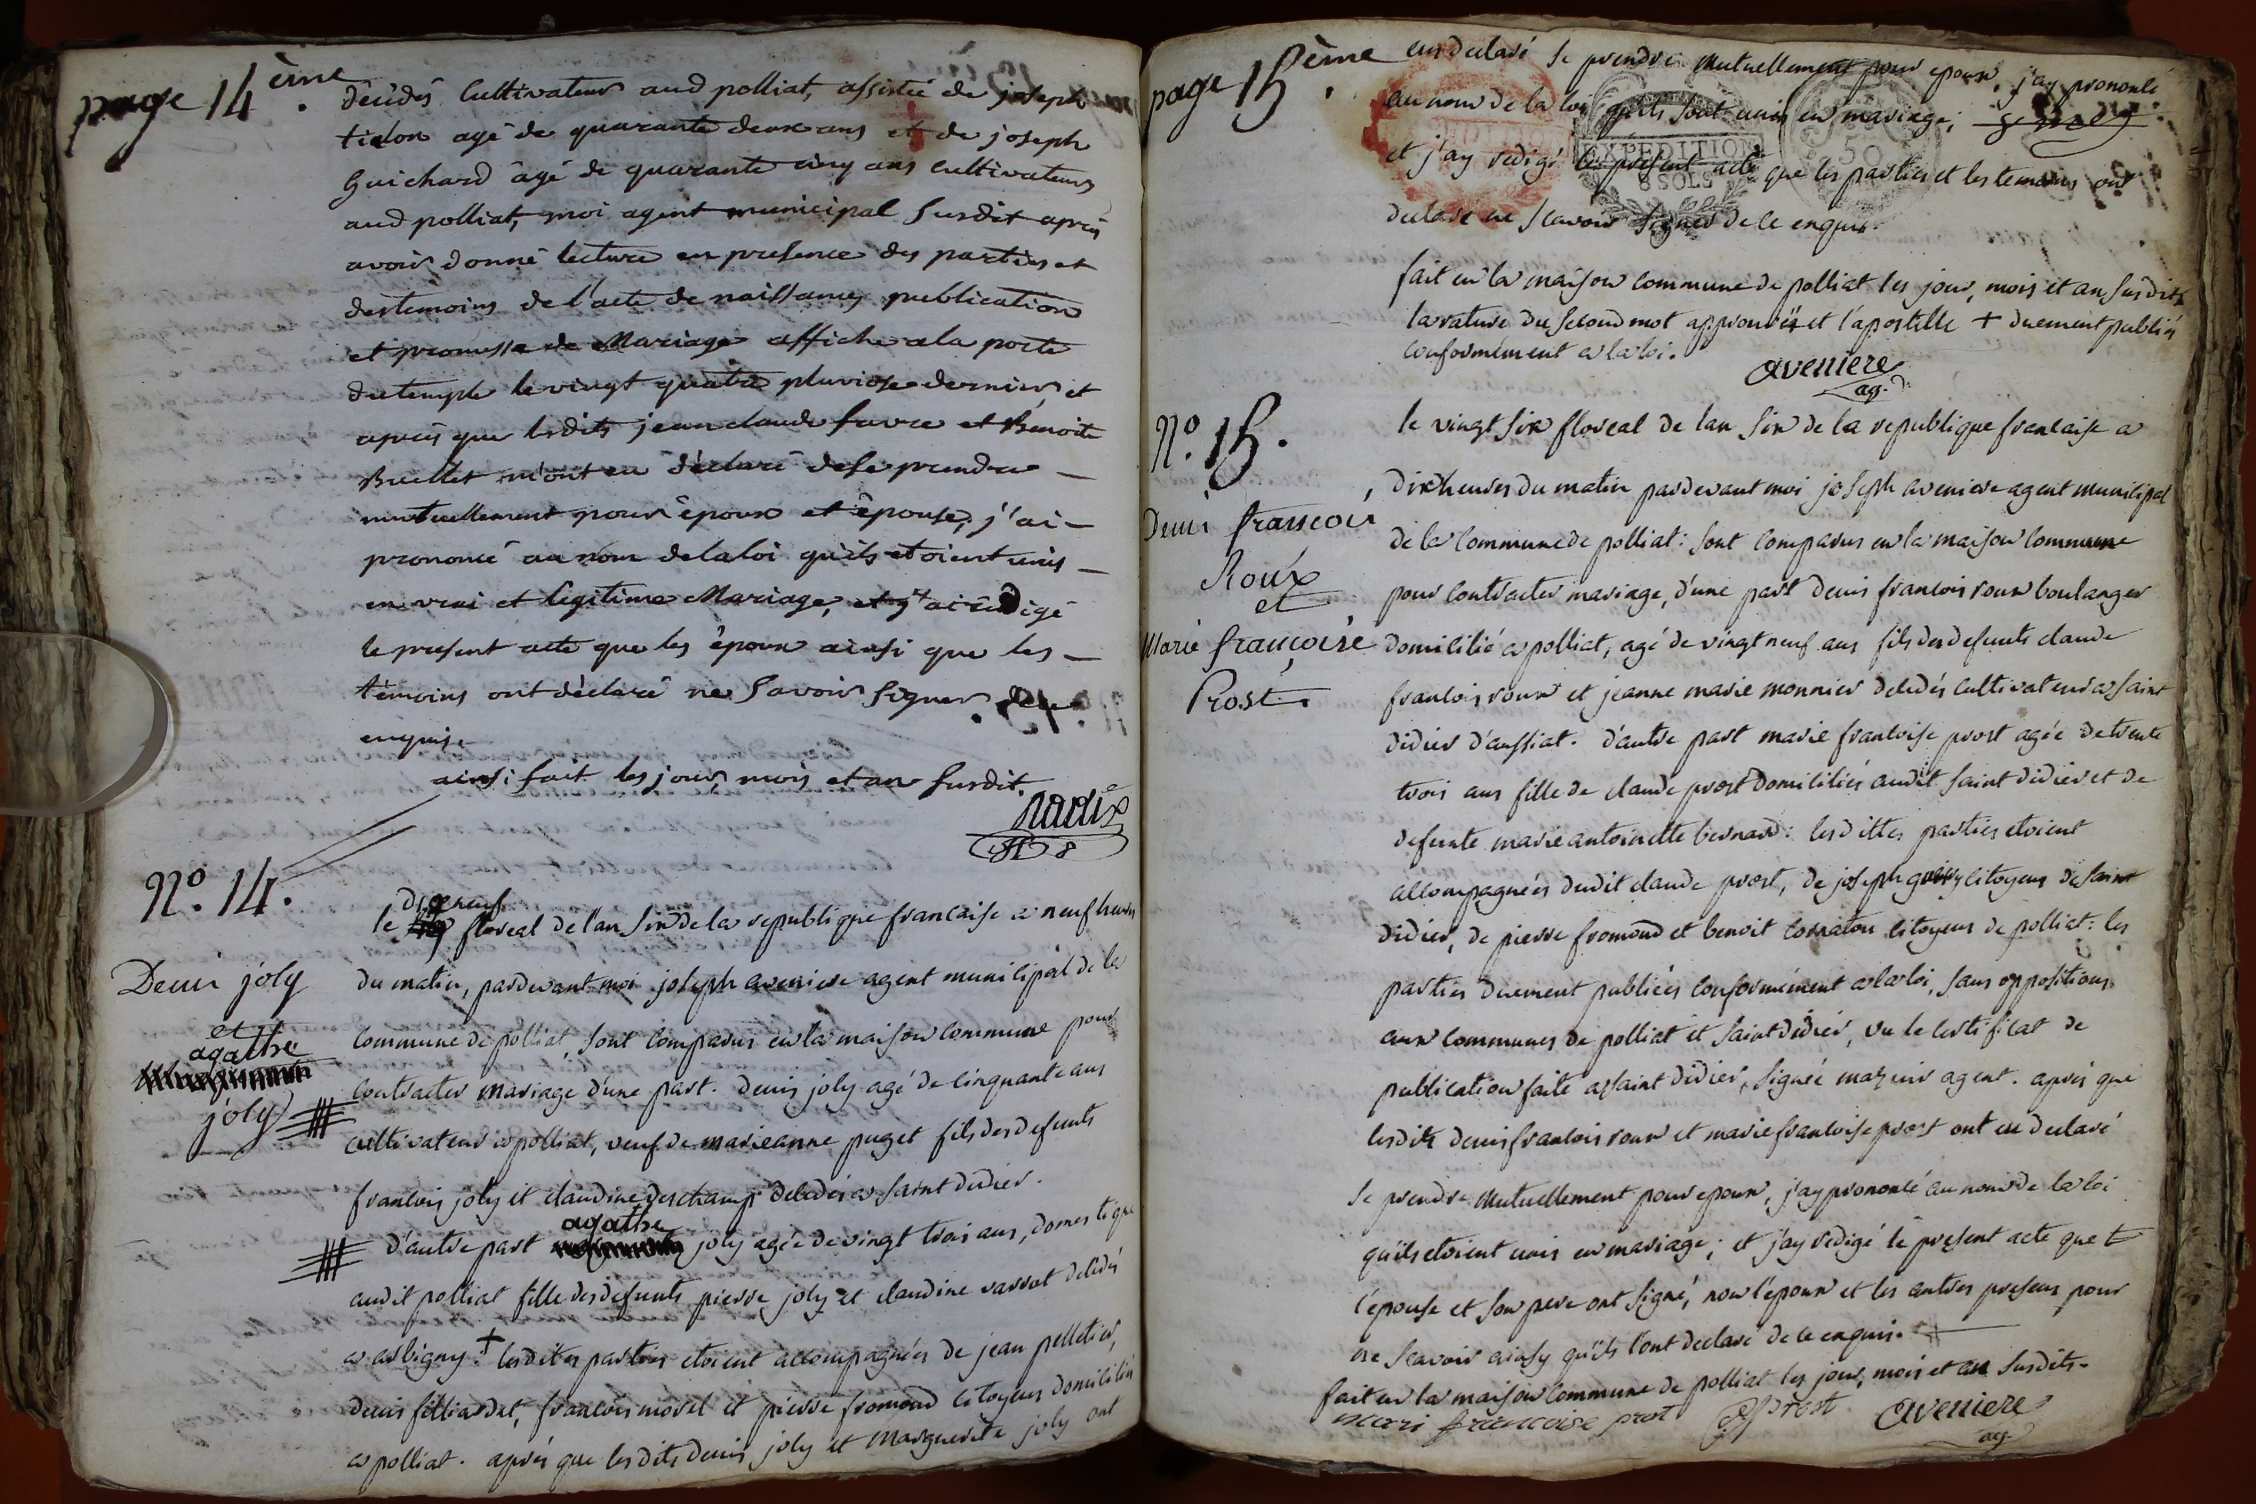 page 14ème.
décédés Cultivateur aud polliat, assistée de joseph
tidon agé de quarante deux ans et de joseph
Guichard âgé de quarante cinq ans cultivateurs
aud polliat, moi agent municipal Susdit après
avoir donné lecture en presence des parties et
des temoins de l'acte de naissances publication
et promesse de Mariage affiche a la porte
du temple le vingt quatre pluviose dernier et
après que lesdits jean claude favre et Benoite
Buellet m'ont eu déclaré de se prendre —
mutuellement pour époux et épouse, j'ai —
prononcé au nom de la loi qu'ils etoient unis —
en vrai et legitime Mariage, et j'ai rédigé
le present acte que les époux ainsi que les —
témoins ont déclaré ne Savoir Signer. de ce
enquis.
ainsi fait les jour, mois et an Susdit.
Nadix
No. 14.
Denis joly
et
agathe
joly
dixneuf
le floreal de l'an Six de la republique francaise a neuf heures
du matin, pardevant moi joseph aveniere agent municipal de la
Commune de polliat, sont comparus en la maison commune pour
Contracter mariage d'une part. denis joly agé de cinquante ans
cultivateur a polliat, veuf de marieanne puget fils des defunts
francois joly et claudine deschamp decedés a saint didier.
agathe
d'autre part joly agée de vingt trois ans, domestique
audit polliat fille des defunts pierre joly et claudine varrat decedés
a arbigny. + lesdites parties etoient accompagnées de jean pelletier,
denis filliardet, francois morel et pierre fromond citoyens domiciliés
a polliat. après que lesdits denis joly et Marguerite joly ont
page 15ème.
eus declaré se prendre Mutuellement pour epoux, j'ay prononcé
au nom de la loi qu'ils sont unis en mariage;
et j'ay redigé le présent acte que les parties et les temoins ont
declaré ne scavoir signer de ce enquis.
EXPEDITION
8 SOLS
50
fait en la maison commune de polliat les jour, mois et an susdits
la rature du second mot approuvée et l'apostille + duement publiés
conformément a la loi.
aveniere
ag.
No. 15.
Denis francois
Roux
et
Marie françoise
Prost.
le vingt six floreal de lan six de la republique francaise a
dix heures du matin pardevant moi joseph aveniere agent municipal
de la Commune de polliat: sont comparus en la maison commune
pour contracter mariage, d'une part denis francois roux boulanger
domicilié a polliat, agé de vingt neuf ans fils des defunts claude
francois roux et jeanne marie monnier decedés cultivateurs a saint
didier d'aussiat. d'autre part marie francoise prost agée de trente
trois ans fille de claude prost domiciliés audit saint didier et de
defunte marie antoinette bernard: lesdittes parties etoient
accompagnées dudit claude prost, de joseph citoyens de saint
didier, de pierre fromond et benoit corraton citoyens de polliat: les
parties duement publiées conformément a la loi, sans oppositions
aux communes de polliat et saint didier, vu le certificat de
publication faite a saint didier, signée mazuir agent. après que
lesdits denis francois roux et marie francoise prost ont eu declaré
se prendre Mutuellement pour epoux, j'ay prononcé au nom de la loi
qu'ils etoient unis en mariage; et j'ay redigé le présent acte que
l'épouse et son pere ont signé, non l'époux et les autres presens pour
ne scavoir ainsy qu'ils l'ont declaré de ce enquis.
fait en la maison commune de polliat les jour, mois et an susdits.
mari francoise prost prost aveniere
ag.